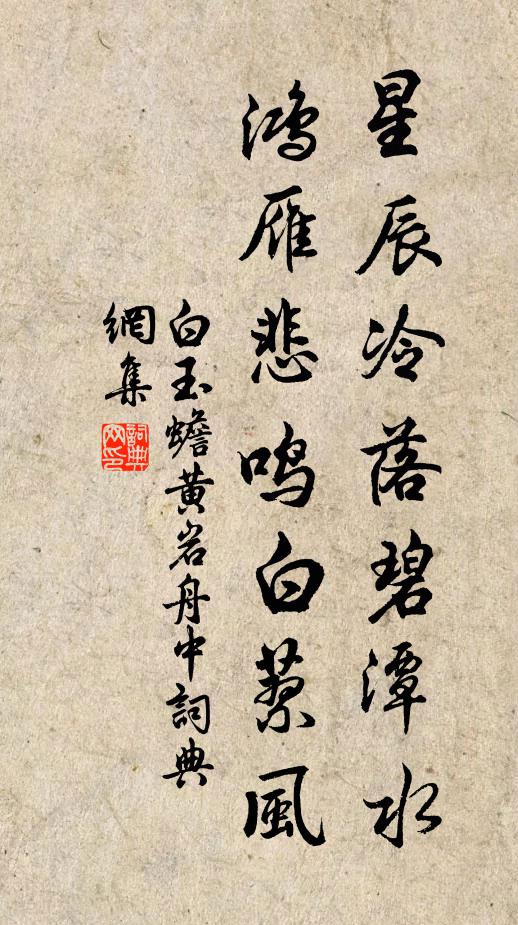 星辰冷落碧潭水
鴻雁悲鳴白蓼風
白玉蟾黄岩舟中詞典
網集
詞典
网印